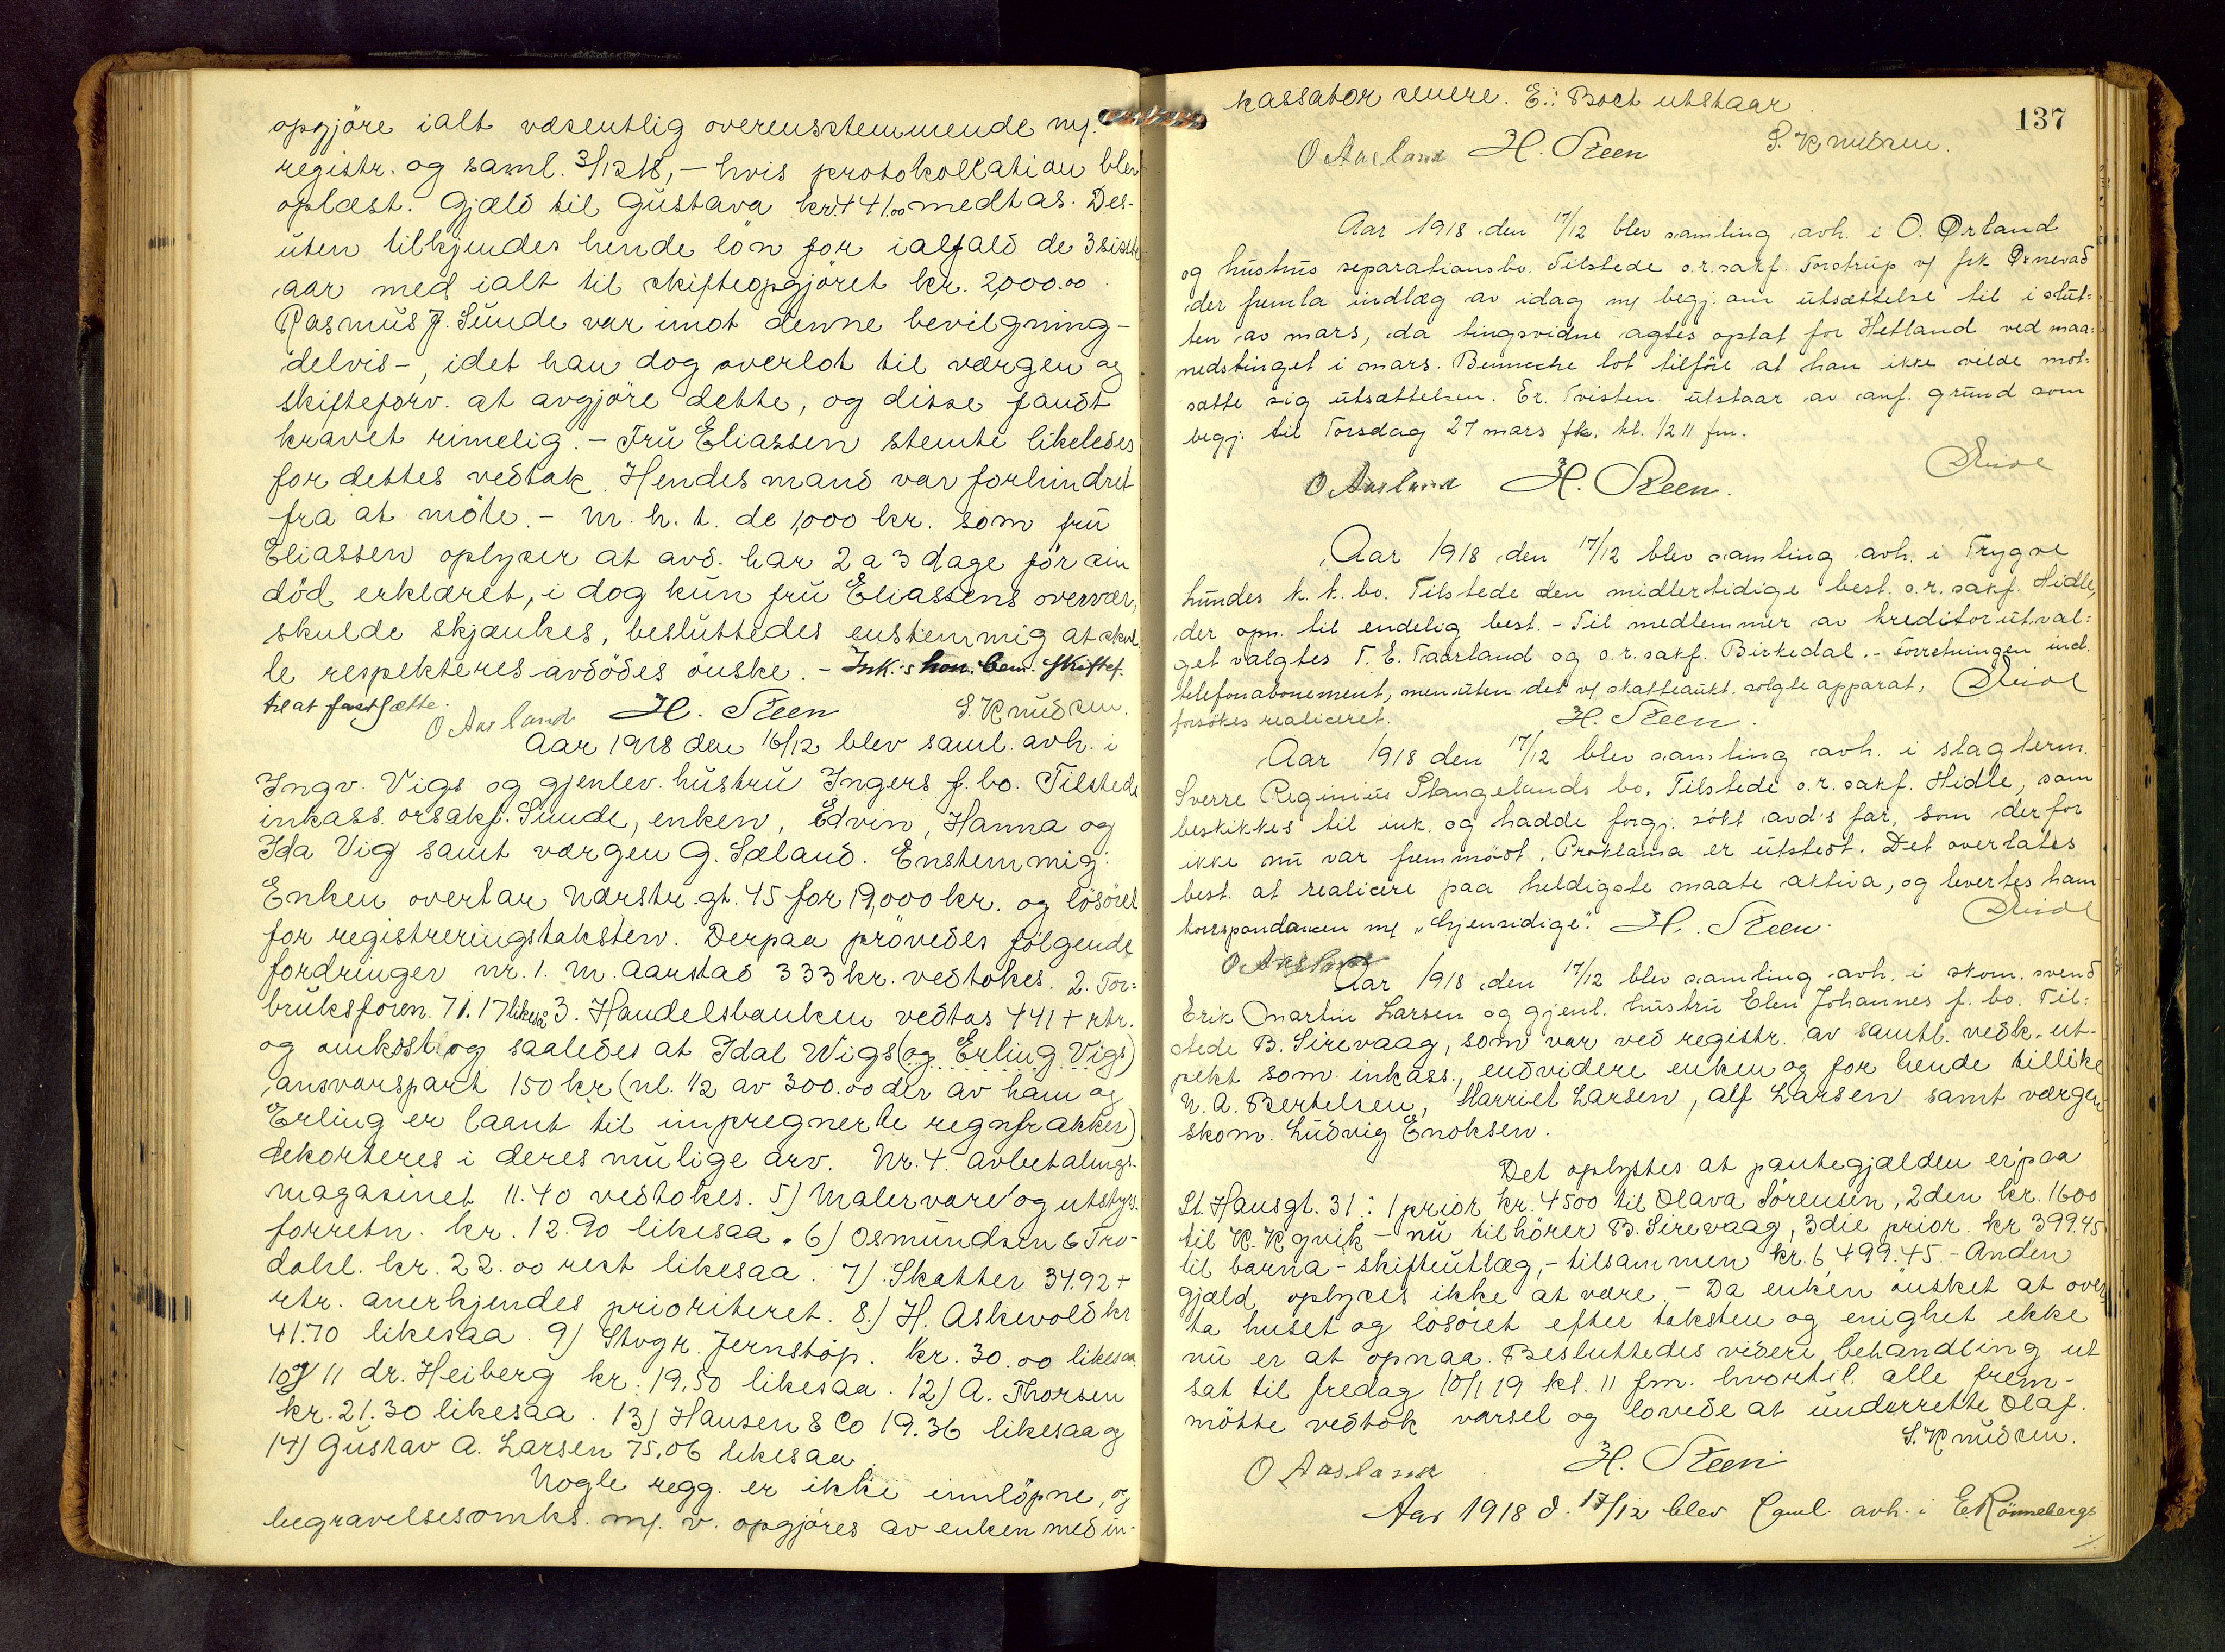 opgjöre ialt væsentlig overensstemmende m/.
registr. og saml. 3/12 18, - hvis protokollation blev
oplæst. Gjæld til Gustava kr. 441.00 medtas. Des-
uten tilkjendes hende lön for ialfald de 3 siste
aar med ialt til skifteopgjöret kr. 2,000.00.
Rasmus J. Sunde var imot denne bevilgning -
delvis -, idet han dog overlot til værgen og
skifteforv. at avgjöre dette, og disse fandt
kravet rimelig. - Fru Eliassen stemte likeledes
for dettes vedtak. Hendes mand var forhindret
fra at möte. - M. h. t. de 1,000 kr. som fru
Eliassen oplyser at avd. har 2 a 3 dage för sin
död erklæret, i dog kun fru Eliassens overvær,
skulde skjænkes, besluttedes enstemmig at skul-
le respekteres avdödes önske. - Ink.'s hon. bem. skiftef.
til at fastsætte.
O Aasland H. Steen S. Knudsen.
Aar 1918 den 16/12 blev saml. avh. i
Ingv. Vigs og gjenlev. hustru Ingers f. bo. Tilstede
inkass. orsakf. Sunde, enken, Edvin, Hanna og
Ida Vig samt værgen G. Sæland. Enstemmig:
Enken overtar Nærstr. gt. 45 for 19,000 kr. og lösöret
for registreringstaksten. Derpaa prövedes fölgende
fordringer nr. 1. M. Aarstad 333 kr. vedtokes. 2. For-
bruksforen. 71.17 likesaa 3. Handelsbanken vedtas 441 + rtr.
og omkost. og saaledes at Idal Wigs (og Erling Vigs)
ansvarspart 150 kr (nl. 1/2 av 300.00 der av ham og
Erling er laant til impregnerte regnfrakker)
dekorteres i deres mulige arv. Nr. 4. Avbetalings-
magasinet 11.40 vedtokes. 5) Malervare og utstyrs-
forretn. kr. 12.90 likesaa. 6) Osmundsen & Tro-
dahl. kr. 22.00 rest likesaa. 7) Skatter 34.92 +
rtr. anerkjendes prioriteret. 8.) H. Askevold kr
41.70 likesaa. 9) Stvgr. Jernstöp. kr. 30.00 likesaa.
10 og 11 dr. Heiberg kr. 19.50 likesaa. 12) A. Thorsen
kr. 21.30 likesaa. 13) Hansen & Co 19.36 likesaa og
14) Gustav A. Larsen 75.06 likesaa.
Nogle regg. er ikke innlöpne, og
begravelsesomks. m/. v. opgjöres av enken med in-
137
kassator senere. E.: Boet utstaar.
O Aasland H. Steen S. Knudsen.
Aar 1918 den 17/12 blev samling avh. i O. Ørland
og hustrus separationsbo. Tilstede o.r.sakf. Torstrup v/ frk
der fremla indlæg av idag m/ begj. om utsættelse til i slut-
ten av mars, da tingsvidne agtes optat for Hetland ved maa-
nedstinget i mars. Benneche lot tilföre at han ikke vilde mot-
sætte sig utsættelsen. Er. Tvisten utstaar av anf. grund som
begj. til Torsdag 27 mars fk. kl. 1/2 11 fm.
O Aasland H. Steen.
Aar 1918 den 17/12 blev samling avh. i Trygve
Lundes k. k. bo. Tilstede den midlertidige best. o.r. sakf. Hidle,
der opn. til endelig best. - Til medlemmer av kreditorutval-
get valgtes T. E. Taarland og o.r. sakf. Birkedal. - Forretningen incl.
telefonabonement, men uten det v/ skatteaukt. solgte apparat,
forsökes realiceret. H. Steen.
Aar 1918 den 17/12 blev samling avh. i slagterm.
Sverre Reginius Stangelands bo. Tilstede o.r. sakf. Hidle, som
beskikkes til ink. og hadde forgj. sökt avd's far, som derfor
ikke nu var fremmödt. Proklama er utstedt. Det overlates
best. at realicere paa heldigste maate aktiva, og levertes ham
korrespondancen m/ "Gjensidige". H. Steen.
O. Aasland
Aar 1918 den 17/12 blev samling avh. i skom. svend
Erik Martin Larsen og gjenl. hustru Elen Johannes f. bo. Til-
stede B. Sirevaag, som var ved registr. av samtl. vedk. ut-
pekt som inkass., endvidere enken og for hende tillike
N. A. Bertelsen, Harriet Larsen, Alf Larsen samt værgen
skom. Ludvig Enoksen.
Det oplystes at pantegjælden er paa
St. Hansgt. 31: 1 prior kr. 4500 til Olava Sörensen, 2den kr. 1600
til K. Kgvik - nu tilhörer B. Sirevaag, 3die prior. kr 399.45
til barna - skifteutlæg, - tilsammen kr. 6,499.45. - Anden
gjæld oplyses ikke at være. - Da enken önsket at over-
ta huset og lösöret efter taksten og enighet ikke
nu er at opnaa. Besluttedes videre behandling ut
sat til fredag 10/1 19 kl. 11 fm. hvortil alle frem-
mötte vedtok varsel og lovede at underrette Olaf.
S. Knudsen.
O Aasland H. Steen
Aar 1918 d. 17/12 blev saml. avh. i E Rönnebergs